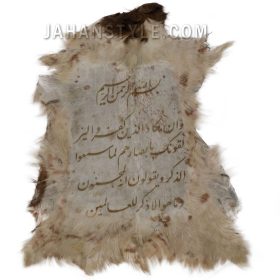 JAHANSTYLE.COM
بسم الله الرحمن الرحیم
وان یکاد الذین کفروا لیز
لقونک بابصارهم لما سمعوا
الذکر و یقولون انه لمجنون
و ما هو الا ذکر للعالمین